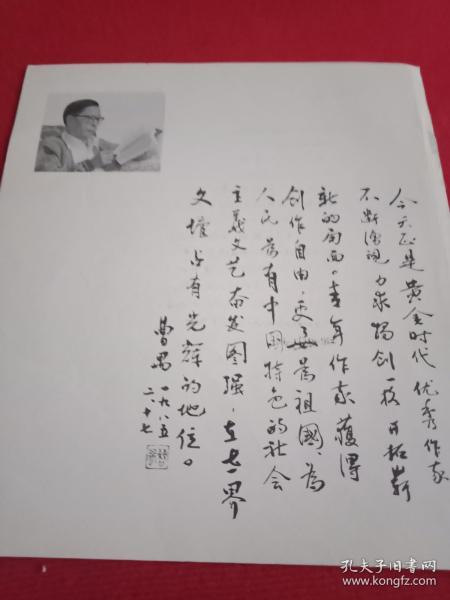 今天正是黄金时代 优秀作家
不断涌现 力求独创一格 开拓崭
新的局面。青年作家获得
创作自由，更要为祖国、为
人民为有中国特色的社会
主义文艺奋发图强，在世界
文坛占有光辉的地位。
曹禺 一九八五
六·十七
孔夫子旧书网
www.kongfz.com